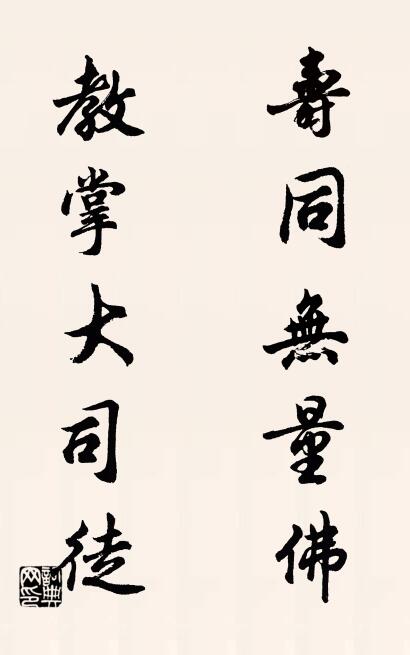 壽同無量佛
教掌大司徒